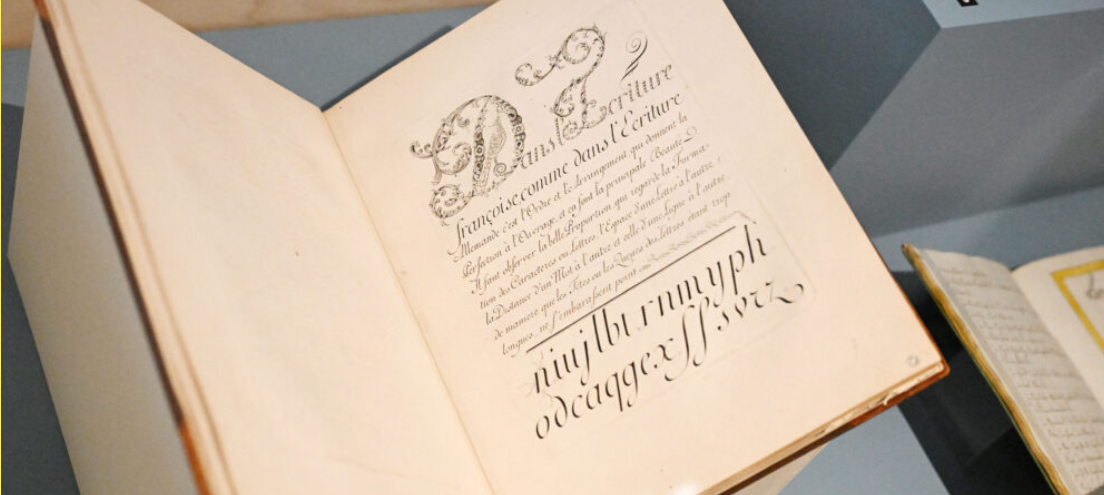 Dans l'Ecriture
françoise, comme dans l'Ecriture
Allemande c'est l'Ordre et le Arrangement, qui donnent la
Perfection à l'Ouvrage, et en font la principale Beauté.
Il faut observer la belle Proportion qui regarde la Forma-
tion des Caracteres ou Lettres, l'Espace d'une Lettre à l'autre,
la Distance d'un Mot à l'autre et celle d'une Ligne à l'autre
de maniere que les Têtes ou les Queues des Lettres étant trop
longues, ne s'embarassent point
niujlbt rnmyph
odcaqgexſſsvrz